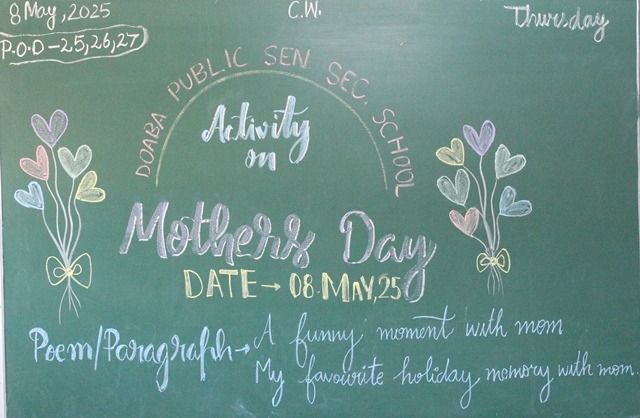 8 May, 2025
C.W.
Thursday
P.O.D-25,26,27
DOABA PUBLIC SEN SEC. SCHOOL
Activity
on
Mothers Day
DATE→08.MAY,25
Poem/Paragraph→A funny moment with mom
My favourite holiday memory with mom.